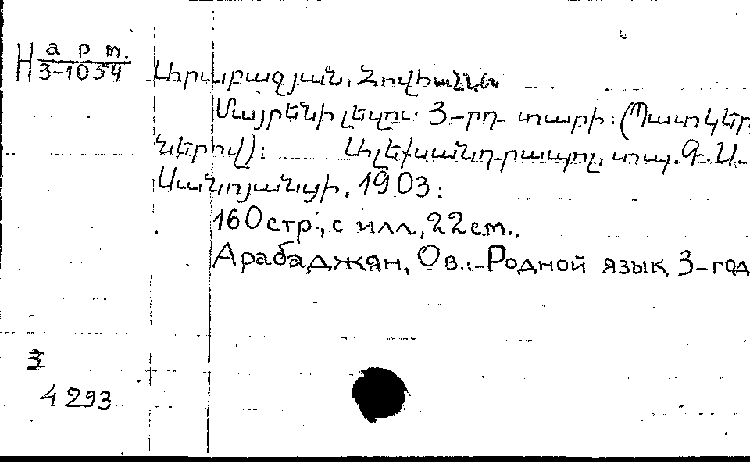 H арт.
3-1054
Արաբաջյան, Հովհաննես
Մայրենի լեզու 3-րդ տարի: (Պատկեր
ներով): Ալեքսանդրապոլ, տպ. Գ. Ս.
Սանոյանցի, 1903:
160 стр., с илл., 22 см.
Арабаджян, Ов.-Родной язык 3-год
3
4293